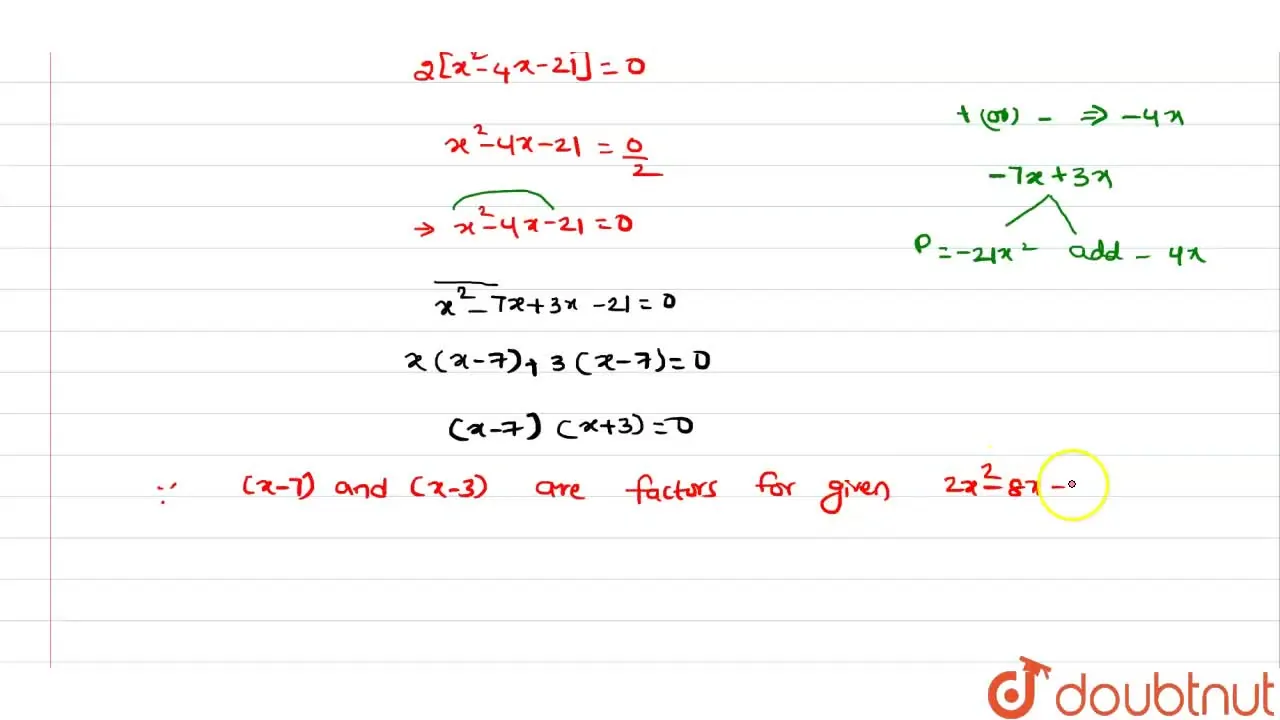 2[x²-4x-21]=0
x²-4x-21 = 0/2
→ x²-4x-21=0
x²-7x+3x-21=0
x(x-7)+3(x-7)=0
(x-7)(x+3)=0
∵ (x-7) and (x-3) are factors for given 2x²-8x-
+(or) - ⇒ -4x
-7x+3x
P=-21x² add - 4x
doubtnut